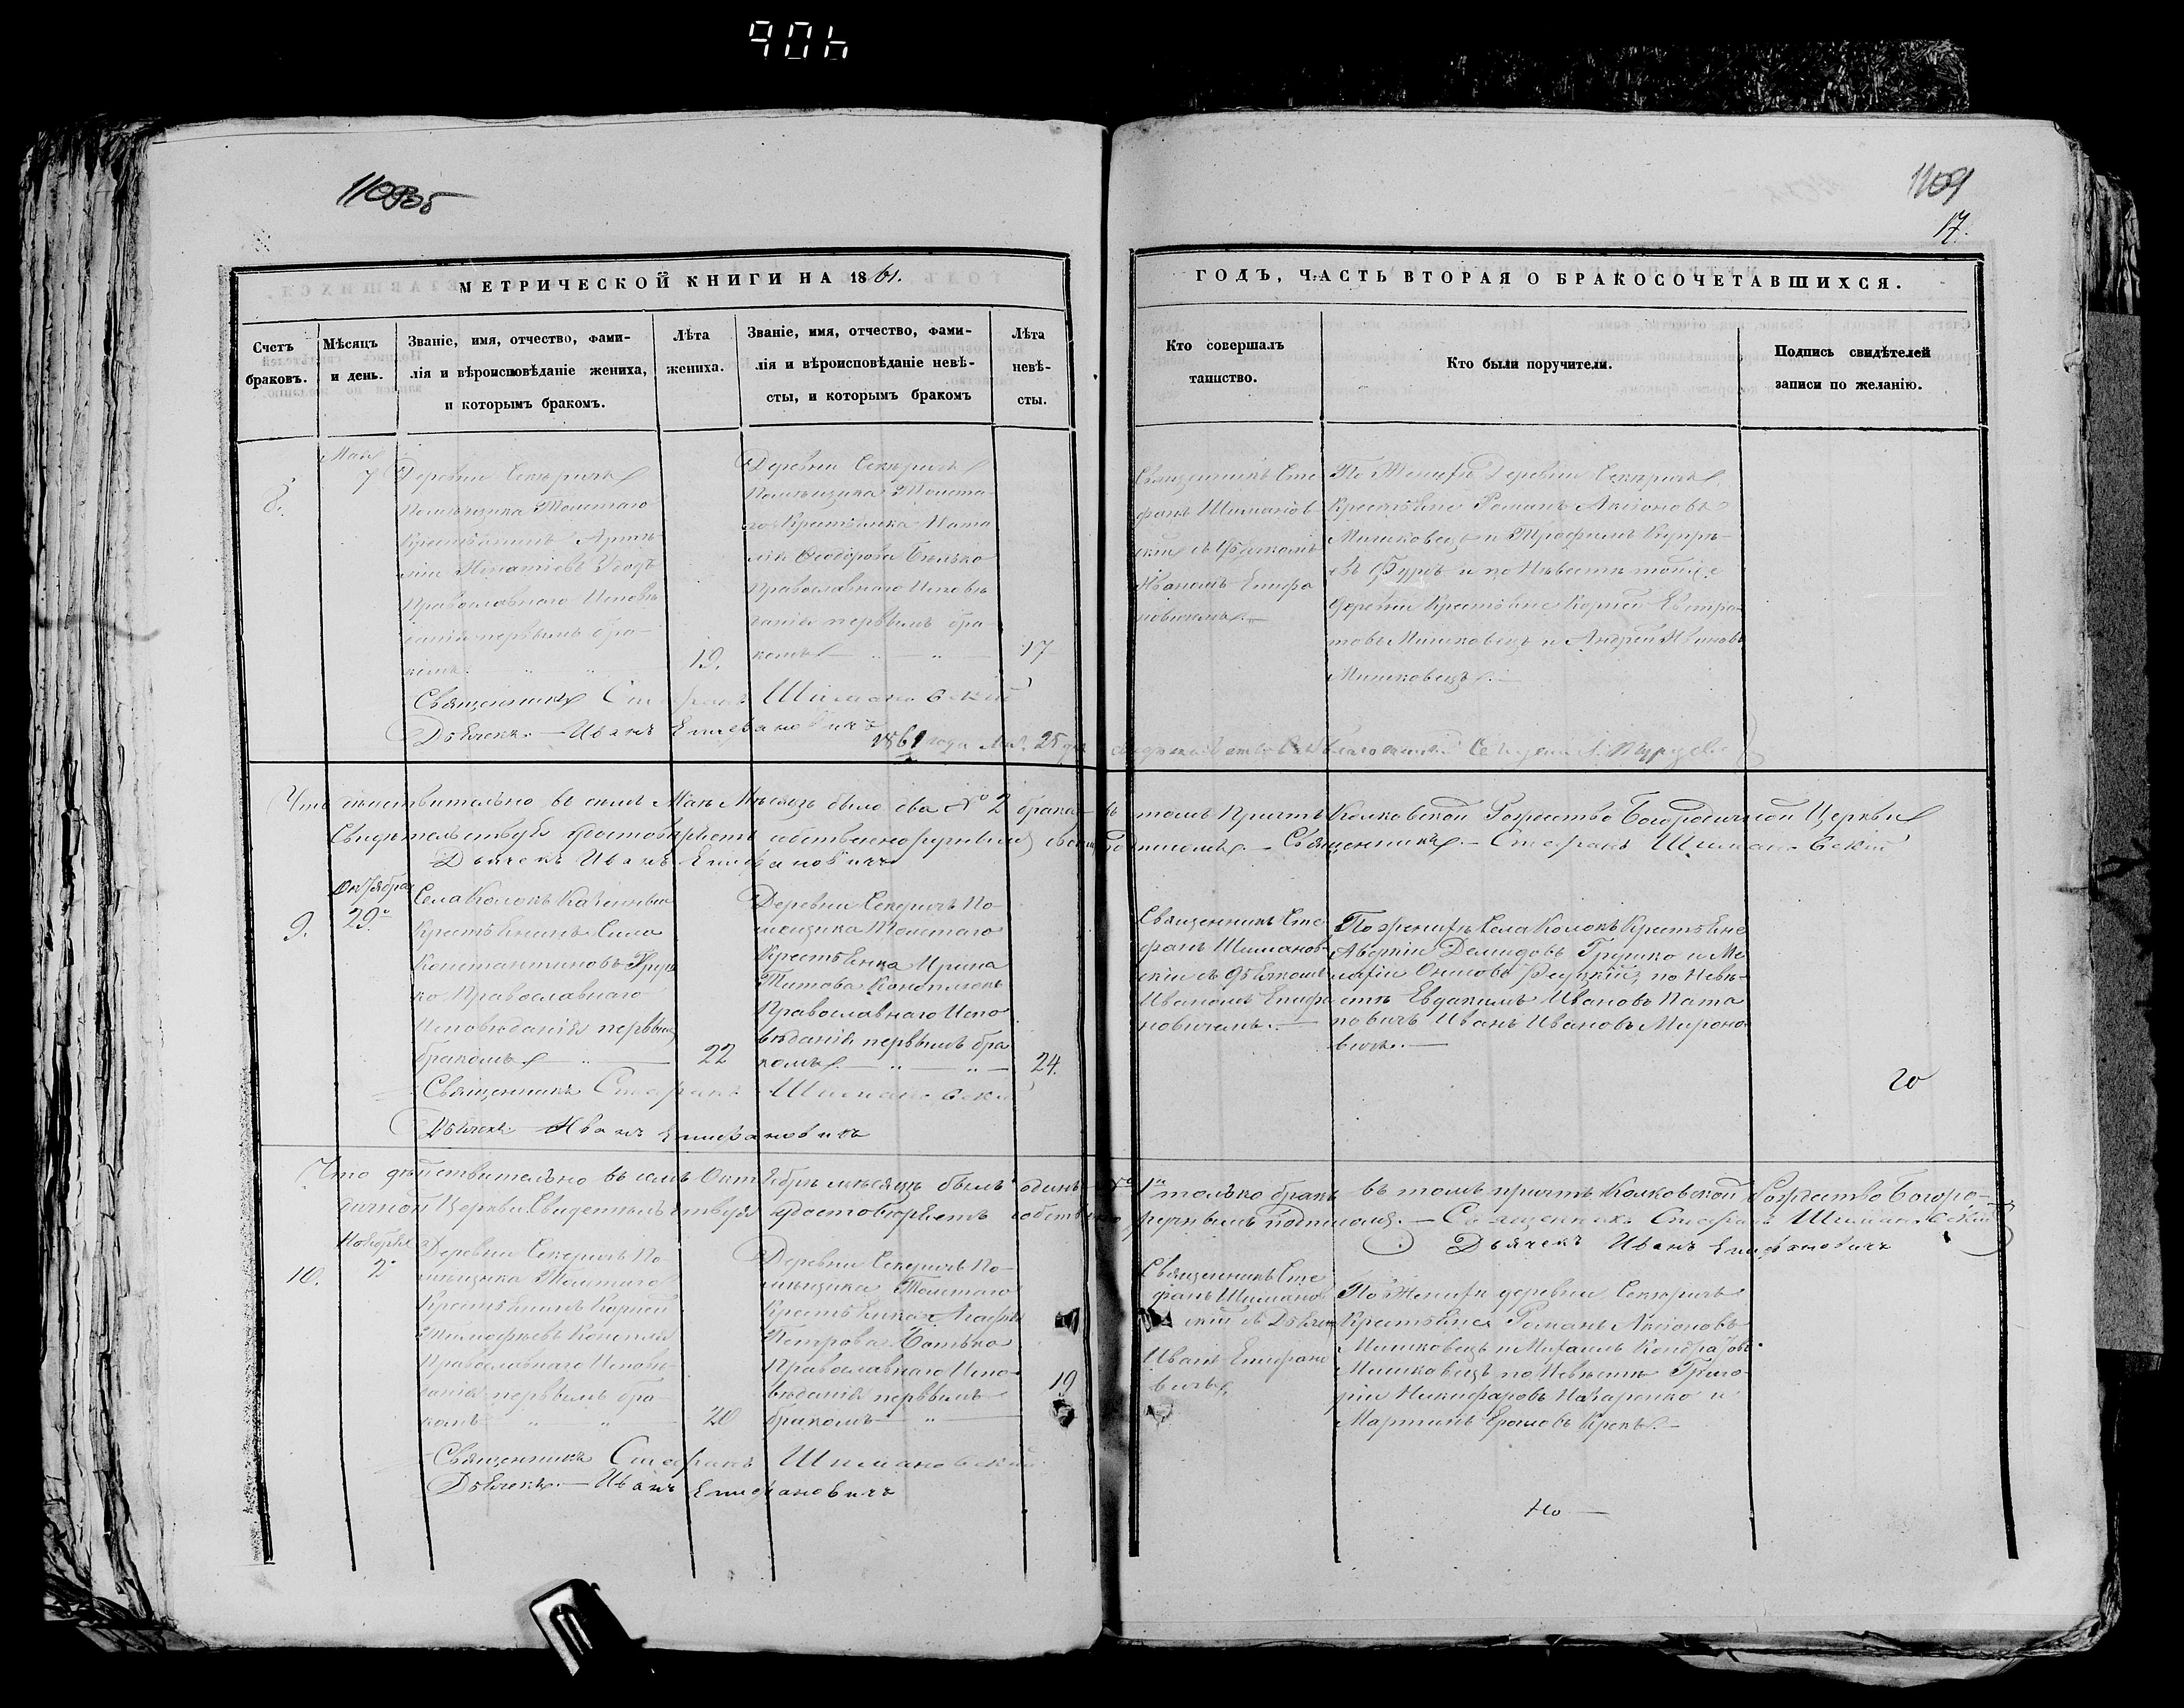 906
1108об
1109
17.
МЕТРИЧЕСКОЙ КНИГИ НА 1861.
ГОДЪ, ЧАСТЬ ВТОРАЯ О БРАКОСОЧЕТАВШИХСЯ.
Счетъ браковъ.
Мѣсяцъ и день.
Званіе, имя, отчество, фами-
лія и вѣроисповѣданіе жениха,
и которымъ бракомъ.
Лѣта жениха.
Званіе, имя, отчество, фами-
лія и вѣроисповѣданіе невѣ-
сты, и которымъ бракомъ
Лѣта невѣ-
сты.
Кто совершалъ
таинство.
Кто были поручители.
Подпись свидѣтелей
записи по желанію.
8.
Мая
7
Деревни Секѣричъ
Помѣщика Толстаго
Крестьянинъ
Игнатіевъ
Православнаго Исповѣ
данія первымъ бра-
комъ
19.
Деревни Секѣричъ
Помѣщика Толста-
го Крестьянка Ната
лія Ѳеодорова
Православнаго Исповѣ
данія первымъ бра
комъ
17
Священникъ Сте
фанъ Шиманов
скій съ Дьячкомъ
Иваномъ Епифа
новичемъ.
По Женихѣ Деревни Секѣричъ
Крестьяне Романъ Аксіоновъ
Мишковецъ и Трофимъ
и по Невѣстѣ тойже
деревни Крестьяне Корней Евстра-
товъ Мишковецъ и Андрей Ивановъ
Мишковецъ.
Священникъ Стефанъ Шимановскій
Дьячекъ Иванъ Епифановичъ
1861 года 25 дня Благочинный
Что дѣйствительно въ семъ Маѣ Мѣсяцѣ было два № 2 брака въ томъ Причтъ Колковской Рождество Богородичной Церкви
Свидѣтельствуя удостовѣряетъ собственноручнымъ своимъ подписомъ. Священникъ Стефанъ Шимановскій
Дьячекъ Иванъ Епифановичъ
9.
Октября
29.
Села Колокъ Казенный
Крестьянинъ Сила
Константиновъ Груш
ко Православнаго
Исповѣданія первымъ
бракомъ
22
Деревни Секеричъ По-
мѣщика Толстаго
Крестьянка Ирина
Титова
Православнаго Испо
вѣданія первымъ бра
комъ
24.
Священникъ Сте
фанъ Шиманов-
скій съ Дьячкомъ
Иваномъ Епифа
новичемъ.
По женихѣ Села Колокъ Крестьяне
Авсѣтіи Демидовъ Грушко и
Онисовъ по Невѣ-
стѣ Евдокимъ Ивановъ Пата
повичъ Иванъ Ивановъ Мироно
вичъ.
20
Священникъ Стефанъ Шимановскій
Дьячекъ Иванъ Епифановичъ
Что дѣйствительно въ семъ Октябрѣ мѣсяцѣ былъ одинъ № 1й только бракъ въ томъ причтъ Колковской Рождество Богоро-
дичной Церкви Свидетельствуя удостовѣряетъ собственно ручнымъ подписомъ. Священникъ Стефанъ Шимановскій
Дьячекъ Иванъ Епифановичъ
10.
Ноября
2
Деревни Секеричъ По-
мѣщика Толстаго
Крестьянинъ Корней
Тимофѣевъ
Православнаго Исповѣ-
данія первымъ бра
комъ
20
Деревни Секеричъ По-
мѣщика Толстаго
Крестьянка Агафія
Петрова
Православнаго Испо-
вѣданія первымъ
бракомъ
19
Священникъ Сте
фанъ Шиманов
скій съ Дьячк
Иванъ Епифано
вичъ.
По Женихѣ деревни Секеричъ
Крестьяне Романъ Аксіоновъ
Мишковецъ и Михаилъ Кондратовъ
Мишковецъ по Невѣстѣ Григо-
рій Никифаровъ Назаренко и
Мартинъ
Священникъ Стефанъ Шимановскій
Дьячекъ Иванъ Епифановичъ